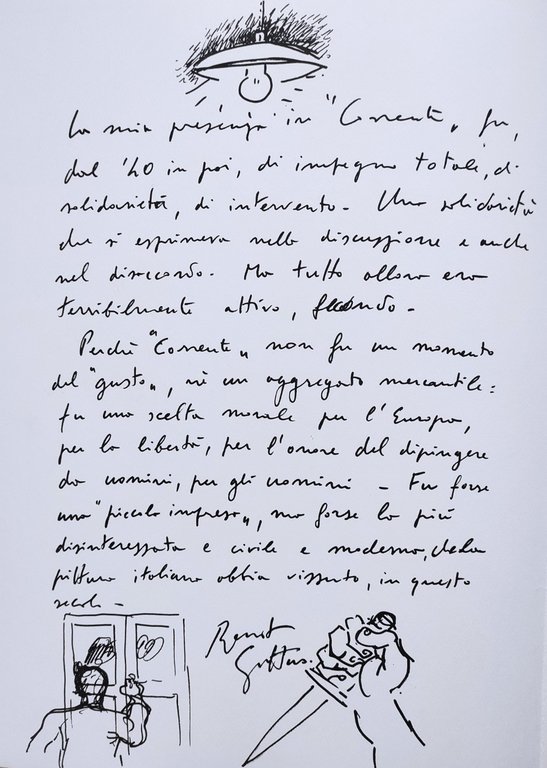 La mia presenza in "Corrente„ fu,
dal '40 in poi, di impegno totale, di
solidarietà, di intervento - Una solidarietà
che si esprimeva nella discussione e anche
nel disaccordo - Ma tutto allora era
terribilmente attivo, fecondo -
Perché "Corrente„ non fu un momento
del "gusto„, né un aggregato mercantile:
fu una scelta morale per l'Europa,
per la libertà, per l'onore del dipingere
da uomini, per gli uomini - Fu forse
una "piccola impresa„, ma forse la più
disinteressata e civile e moderna, che la
pittura italiana abbia vissuto, in questo
secolo -
Renato
Guttuso